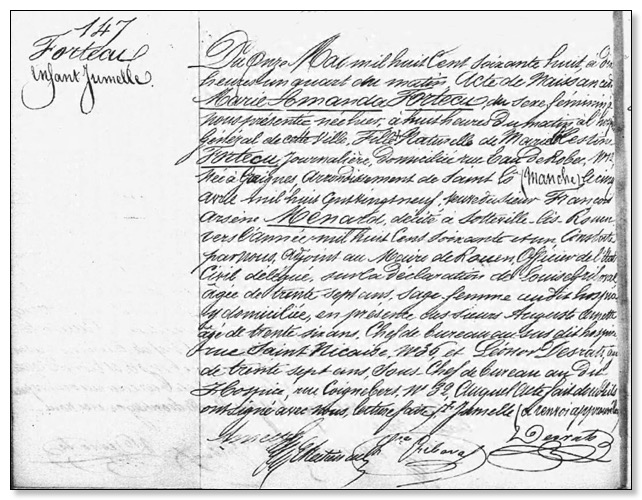 147
Forteau
enfant Jumelle.
Du Onze Mai mil huit Cent soixante huit, à
heures un quart du matin, Acte de Naissance
Marie Amanda Forteau du sexe féminin
nous présenté née hier, à huit heures du matin à l'
Général de cette Ville, Fille Naturelle de Marie
Forteau, Journalière, domiciliée rue Eau de Robec, N°
Née à arrondissement de Saint Lô (Manche), le
avril mil huit Cent vingt neuf, veuve du sieur François
Arsène Ménard, décédé à Sotteville-lès-Rouen
vers l'année mil huit Cent soixante et un, Constaté
par nous, adjoint au Maire de Rouen, Officier de l'État
Civil délégué sur la déclaration de Louise
âgée de trente sept ans, sage femme au dit hospice
y domiciliée, en présence des sieurs Auguste
âgé de trente six ans, Chef de bureau au sus dit hospice
rue Saint Nicaise, N° 36, et Léonor Desrats,
de trente sept ans Sous Chef de bureau au dit
Hospice, rue Coignebert, N° 32, Auquel Acte fait double ils
ont signé avec nous, lecture faite, Jumelle (1 renvoi approuvé)
Desrats